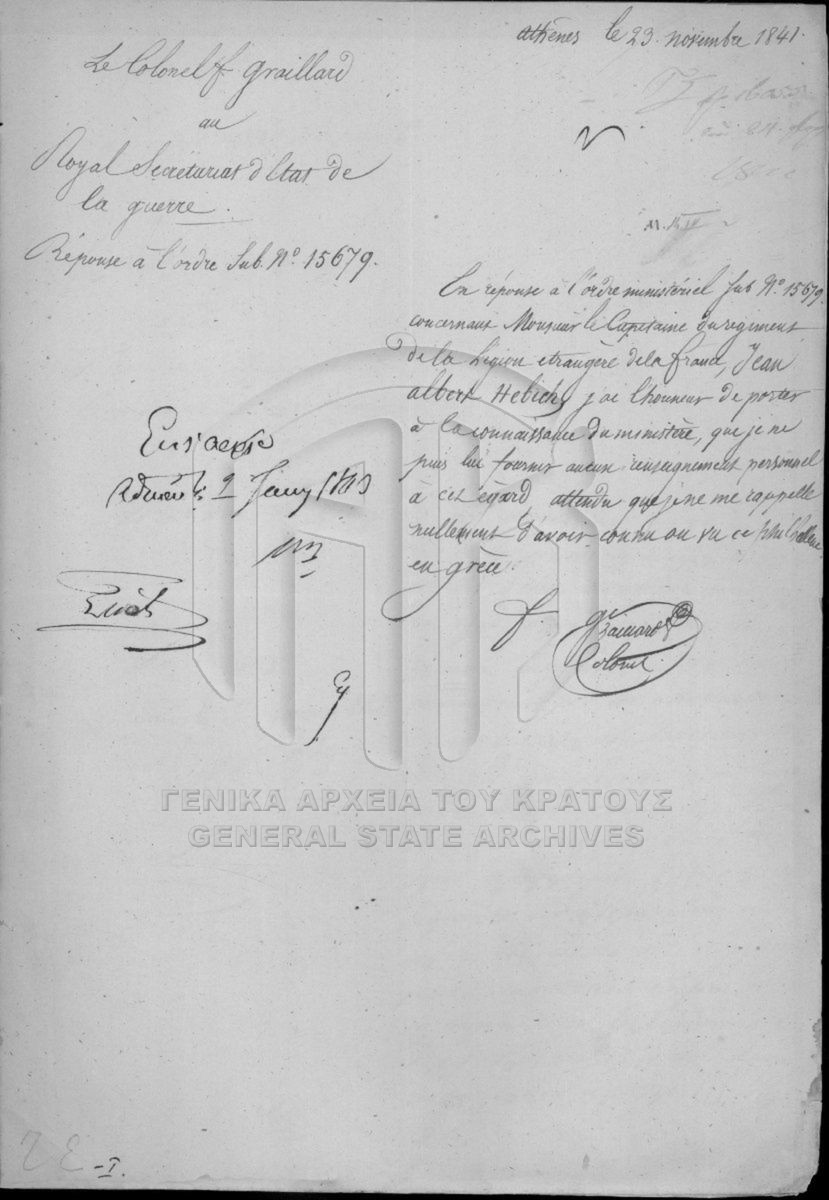 athènes le 23 novembre 1841.
Le Colonel f Graillard
au
Royal Secrétariat d'Etat de
la guerre.
Réponse à l'ordre Sub. N° 15679.
En réponse à l'ordre ministériel Sub N° 15679.
concernant Monsieur le Capitaine du regiment
de la Légion etrangère de la france, Jean
albert Hebich, j'ai l'honneur de porter
à la connaissance du ministère, que je ne
puis lui fournir aucun renseignement personnel
à cet égard attendu que je ne me rappelle
nullement d'avoir connu ou vu ce philhellène
en grèce.
f. graillard
Colonel
ΓΕΝΙΚΑ ΑΡΧΕΙΑ ΤΟΥ ΚΡΑΤΟΥΣ
GENERAL STATE ARCHIVES